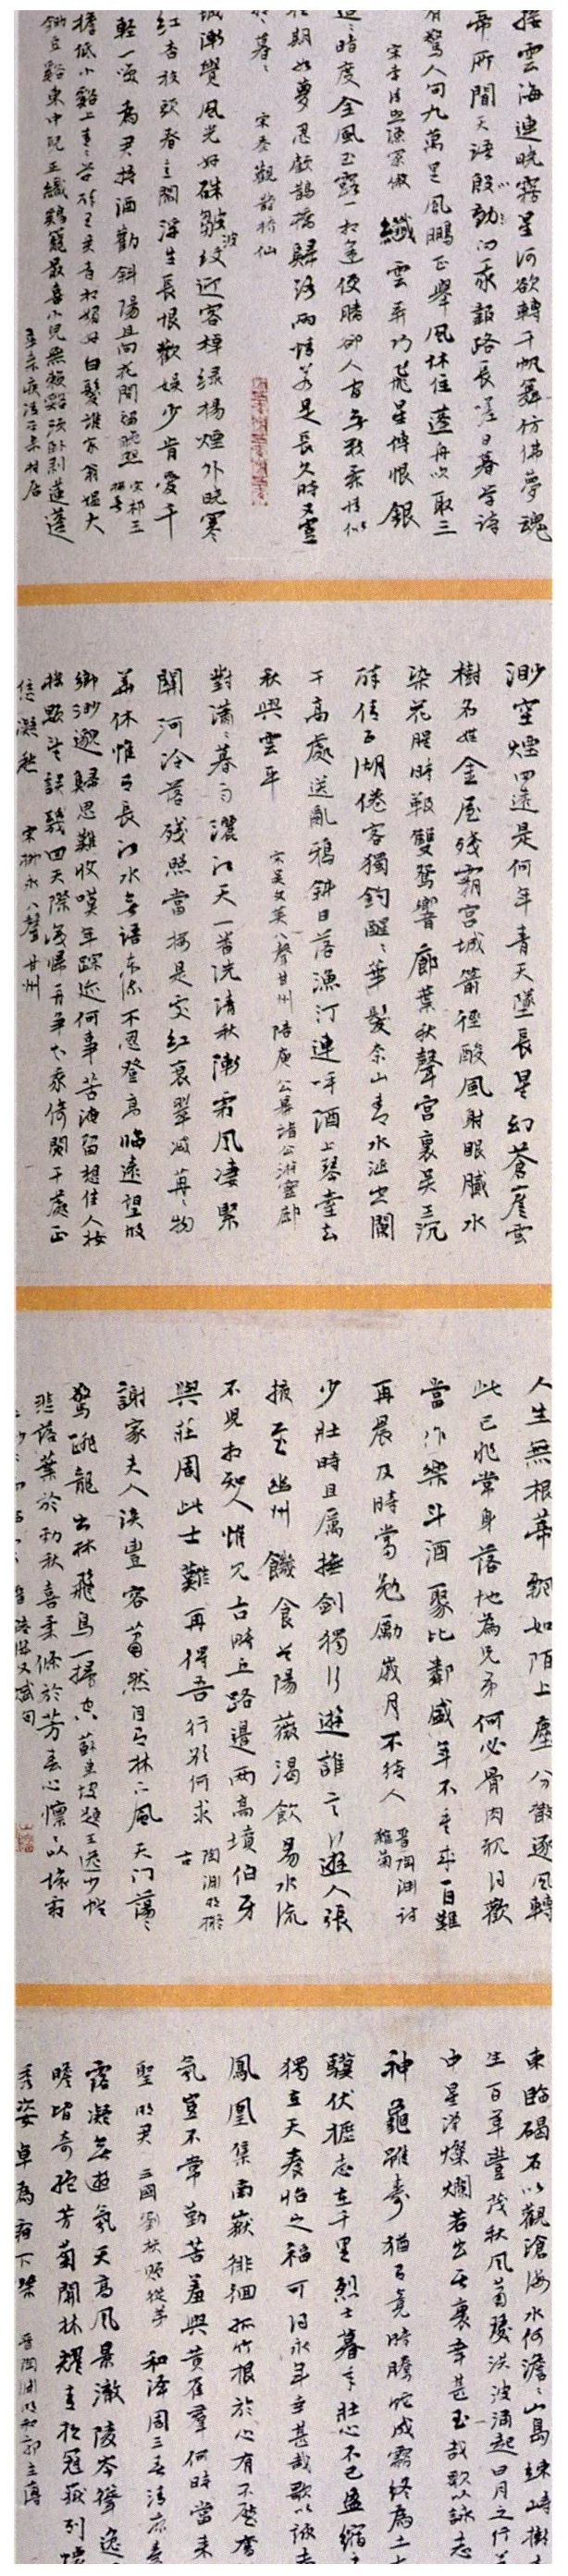 接雲海連曉霧星河欲轉千帆舞仿佛夢魂
帝所聞天語殷勤問我歸路長嗟日暮學詩
有驚人句九萬里風鵬正舉風休住蓬舟吹取三
宋李清照漁家傲 纖雲弄巧飛星傳恨銀
迢迢暗度金風玉露一相逢便勝卻人間無數柔情似
佳期如夢忍顧鵲橋歸路兩情若是長久時又豈
暮暮 宋秦觀鵲橋仙
城漸覺風光好皺波紋近客棹綠楊煙外曉寒
紅杏枝頭春意鬧浮生長恨歡娛少肯愛千
輕一笑為君持酒勸斜陽且向花間留晚照 宋祁玉
檐低小溪上青青草醉里吳音相媚好白髮誰家翁媼大
鋤豆溪東中兒正織雞籠最喜小兒無賴溪頭臥剝蓮蓬
渺空煙四遠是何年青天墜長星幻蒼崖雲
樹名娃金屋殘霸宮城箭徑酸風射眼膩水
染花腥時靸雙鴛響廊葉秋聲宮裏吳王沉
醉倩五湖倦客獨釣醒醒華髮奈山青水涵空闌
干高處送亂鴉斜日落漁汀連呼酒上琴臺去
秋與雲平 宋吳文英八聲甘州 陪庾公幕諸公游靈
對瀟瀟暮雨灑江天一番洗清秋漸霜風凄緊
關河冷落殘照當樓是處紅衰翠減苒苒物
華休惟有長江水無語東流不忍登高臨遠望故
鄉渺邈歸思難收嘆年蹤跡何事苦淹留想佳人妝
樓顒望誤幾回天際識歸舟爭知我倚闌干處正
恁凝愁 宋柳永八聲甘州
人生無根蒂飄如陌上塵分散逐風轉
此已非常身落地為兄弟何必骨肉親得歡
當作樂斗酒聚比鄰盛年不重來一日難
再晨及時當勉勵歲月不待人 晋陶淵明雜詩
少壯時且厲撫劍獨行遊誰言行遊近張
掖至幽州饑食首陽薇渴飲易水流
不見相知人惟見古時丘路邊兩高墳伯牙
與莊周此士難再得吾行欲何求 陶淵明擬古
謝家夫人淡豐容蕭然自有林下風天門蕩蕩
驚跳龍出林飛鳥一掃空 蘇東坡題王逸少帖
悲落葉於勁秋喜柔條於芳春心懍懍以懷霜
東臨碣石以觀滄海水何澹澹山島竦峙樹木
生百草豐茂秋風蕭瑟洪波涌起日月之行若
中星漢燦爛若出其裏幸甚至哉歌以詠志
神龜雖壽猶有竟時騰蛇成霧終為土
驥伏櫪志在千里烈士暮年壯心不已盈縮之
獨在天養怡之福可得永年幸甚至哉歌以詠志
鳳凰集南嶽徘徊孤竹根於心有不厭奮
氛豈不常勤苦羞與黃雀羣何時當來
聖明君 三國劉楨贈從弟 和澤周三春清涼
露凝無遊氛天高風景澈陵岑聳逸
瞻皆奇絕芳菊開林耀青松冠巖列懷
秀姿卓為霜下傑 晋陶淵明和郭主簿